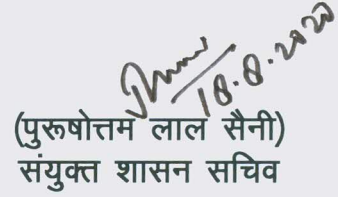 18.8.2020
(पुरूषोत्तम लाल सैनी)
संयुक्त शासन सचिव